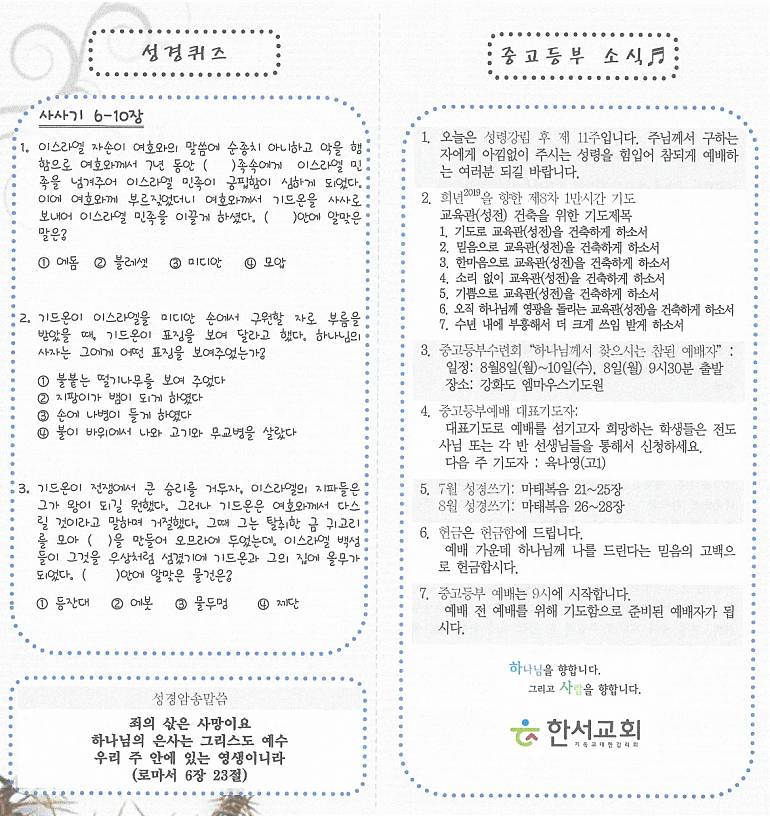 성경퀴즈
사사기 6-10장
1. 이스라엘 자손이 여호와의 말씀에 순종치 아니하고 악을 행
함으로 여호와께서 7년 동안 ( )족속에게 이스라엘 민
족을 넘겨주어 이스라엘 민족이 궁핍함이 심하게 되었다.
이에 여호와께 부르짖었더니 여호와께서 기드온을 사사로
보내어 이스라엘 민족을 이끌게 하셨다. ( )안에 알맞은
말은?
① 에돔 ② 블레셋 ③ 미디안 ④ 모압
2. 기드온이 이스라엘을 미디안 손에서 구원할 자로 부름을
받았을 때, 기드온이 표징을 보여 달라고 했다. 하나님의
사자는 그에게 어떤 표징을 보여주었는가?
① 불붙는 떨기나무를 보여 주었다
② 지팡이가 뱀이 되게 하였다
③ 손에 나병이 들게 하였다
④ 불이 바위에서 나와 고기와 무교병을 살랐다
3. 기드온이 전쟁에서 큰 승리를 거두자, 이스라엘의 지파들은
그가 왕이 되길 원했다. 그러나 기드온은 여호와께서 다스
릴 것이라고 말하며 거절했다. 그때 그는 탈취한 금 귀고리
를 모아 ( )을 만들어 오브라에 두었는데, 이스라엘 백성
들이 그것을 우상처럼 섬겼기에 기드온과 그의 집에 올무가
되었다. ( )안에 알맞은 물건은?
① 등잔대 ② 에봇 ③ 물두멍 ④ 제단
성경암송말씀
죄의 삯은 사망이요
하나님의 은사는 그리스도 예수
우리 주 안에 있는 영생이니라
(로마서 6장 23절)
중고등부 소식♬
1. 오늘은 성령강림 후 제 11주입니다. 주님께서 구하는
자에게 아낌없이 주시는 성령을 힘입어 참되게 예배하
는 여러분 되길 바랍니다.
2. 희년2019을 향한 제8차 1만시간 기도
교육관(성전) 건축을 위한 기도제목
1. 기도로 교육관(성전)을 건축하게 하소서
2. 믿음으로 교육관(성전)을 건축하게 하소서
3. 한마음으로 교육관(성전)을 건축하게 하소서
4. 소리 없이 교육관(성전)을 건축하게 하소서
5. 기쁨으로 교육관(성전)을 건축하게 하소서
6. 오직 하나님께 영광을 돌리는 교육관(성전)을 건축하게 하소서
7. 수년 내에 부흥해서 더 크게 쓰임 받게 하소서
3. 중고등부수련회 “하나님께서 찾으시는 참된 예배자” :
일정: 8월8일(월)~10일(수), 8일(월) 9시30분 출발
장소: 강화도 엠마우스기도원
4. 중고등부예배 대표기도자:
대표기도로 예배를 섬기고자 희망하는 학생들은 전도
사님 또는 각 반 선생님들을 통해서 신청하세요.
다음 주 기도자 : 육나영(고1)
5. 7월 성경쓰기: 마태복음 21~25장
8월 성경쓰기: 마태복음 26~28장
6. 헌금은 헌금함에 드립니다.
예배 가운데 하나님께 나를 드린다는 믿음의 고백으
로 헌금합시다.
7. 중고등부 예배는 9시에 시작합니다.
예배 전 예배를 위해 기도함으로 준비된 예배자가 됩
시다.
하나님을 향합니다.
그리고 사람을 향합니다.
한서교회
기독교대한감리회